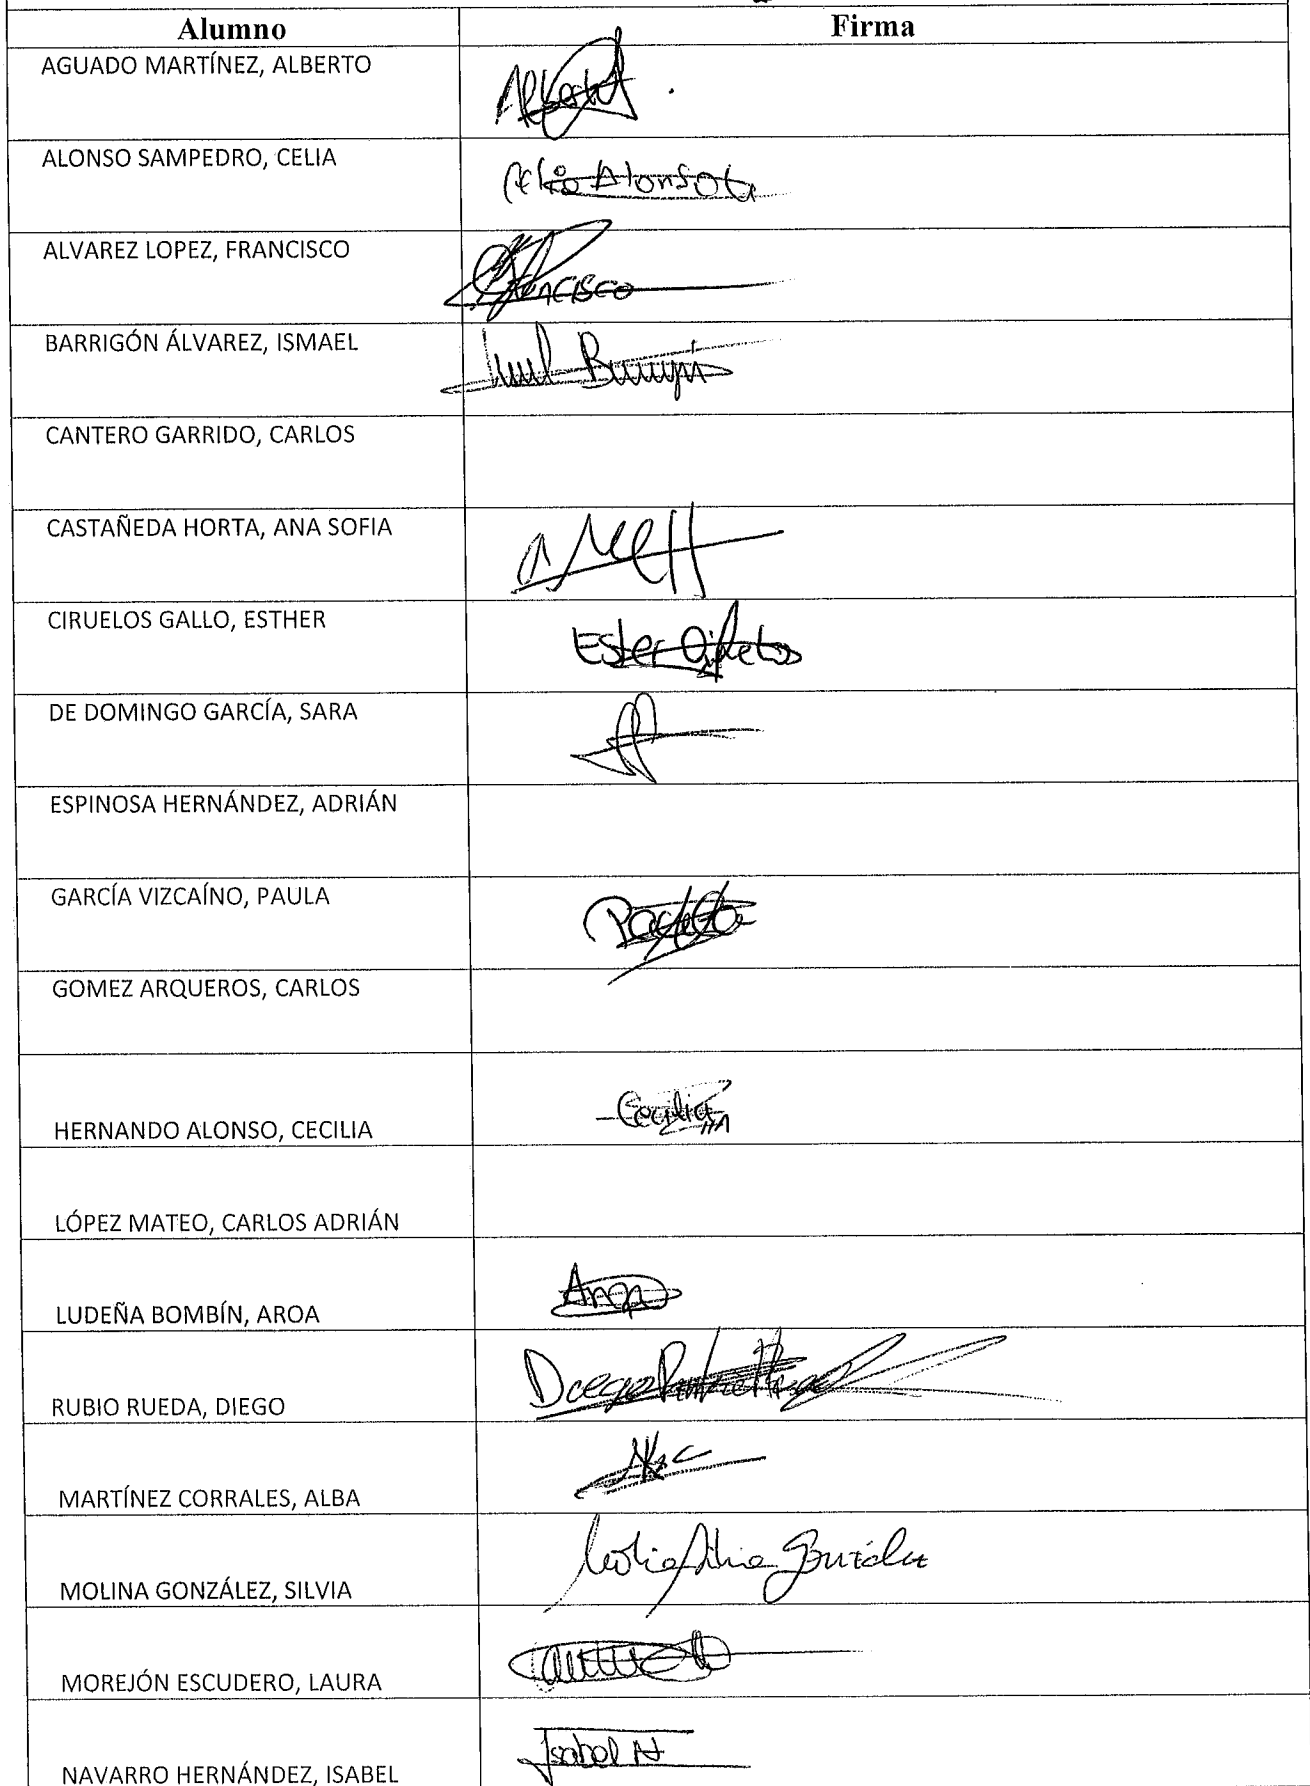 Alumno Firma
AGUADO MARTÍNEZ, ALBERTO
ALONSO SAMPEDRO, CELIA Celia Alonso
ALVAREZ LOPEZ, FRANCISCO Francisco
BARRIGÓN ÁLVAREZ, ISMAEL
CANTERO GARRIDO, CARLOS
CASTAÑEDA HORTA, ANA SOFIA
CIRUELOS GALLO, ESTHER Ester
DE DOMINGO GARCÍA, SARA
ESPINOSA HERNÁNDEZ, ADRIÁN
GARCÍA VIZCAÍNO, PAULA
GOMEZ ARQUEROS, CARLOS
HERNANDO ALONSO, CECILIA Cecilia HA
LÓPEZ MATEO, CARLOS ADRIÁN
LUDEÑA BOMBÍN, AROA
RUBIO RUEDA, DIEGO Diego
MARTÍNEZ CORRALES, ALBA
MOLINA GONZÁLEZ, SILVIA
MOREJÓN ESCUDERO, LAURA
NAVARRO HERNÁNDEZ, ISABEL Isabel N